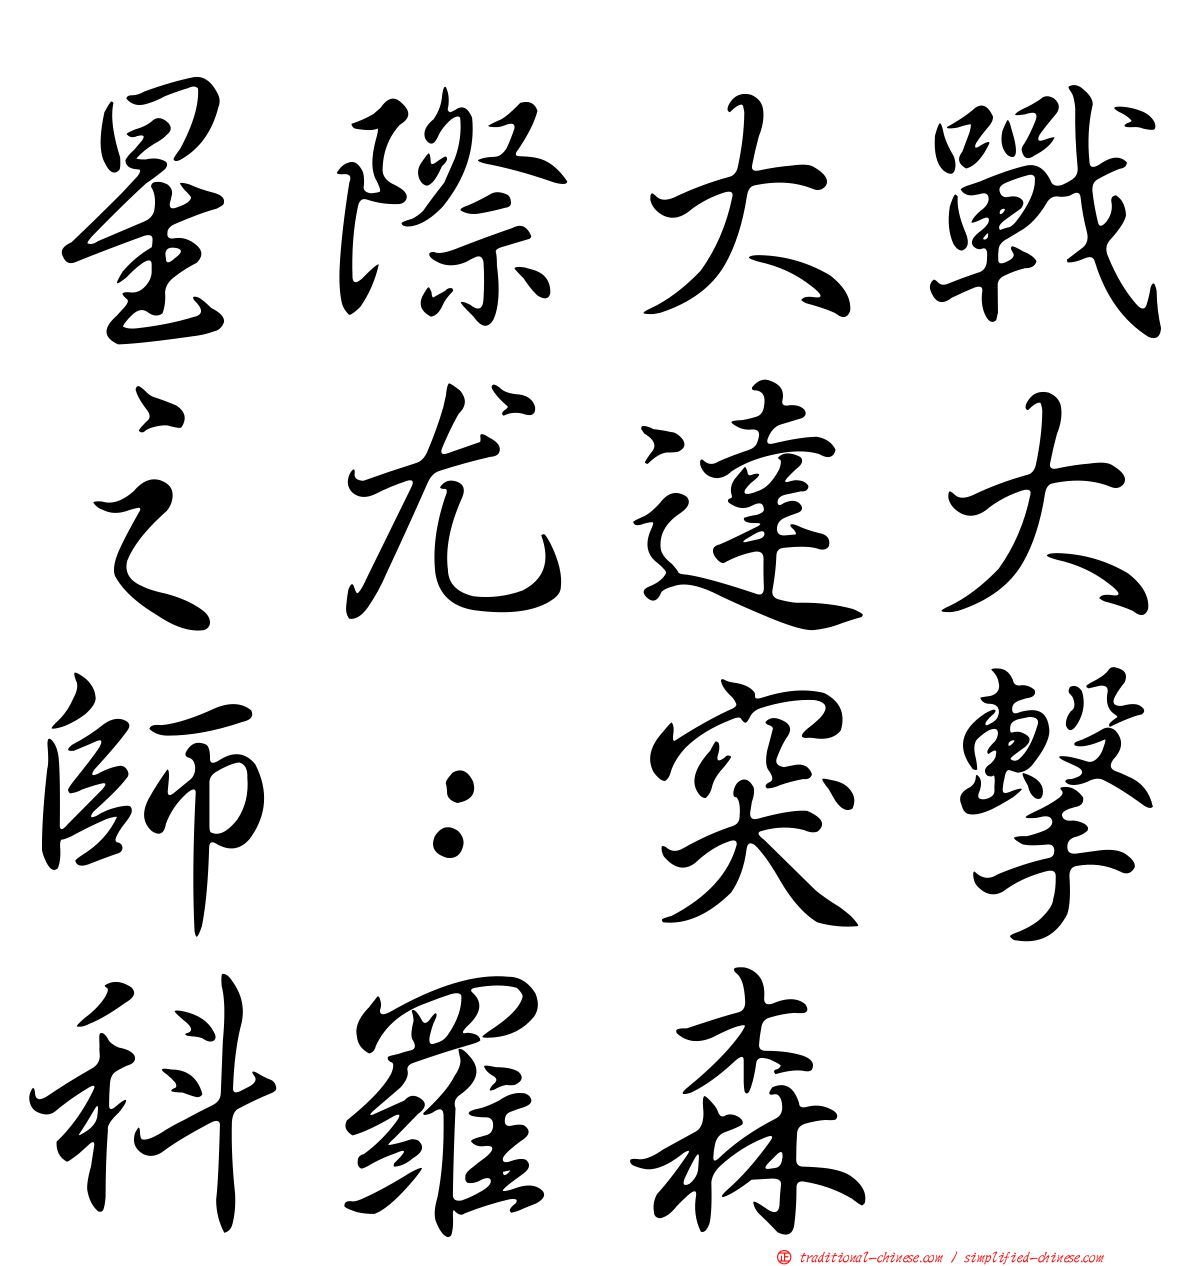 星際大戰
之尤達大
師：突擊
科羅森
正 traditional-chinese.com / simplified-chinese.com